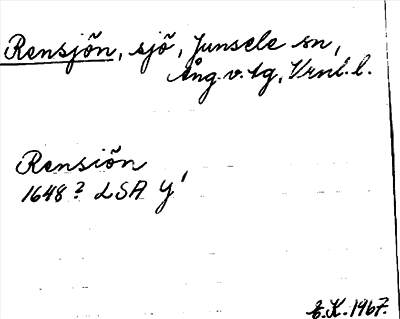 Rensjön, sjö, Junsele sn,
Ång.v.tg, Vrnl.l.
Rensiön
1648? LSA Y'
E.K. 1967.